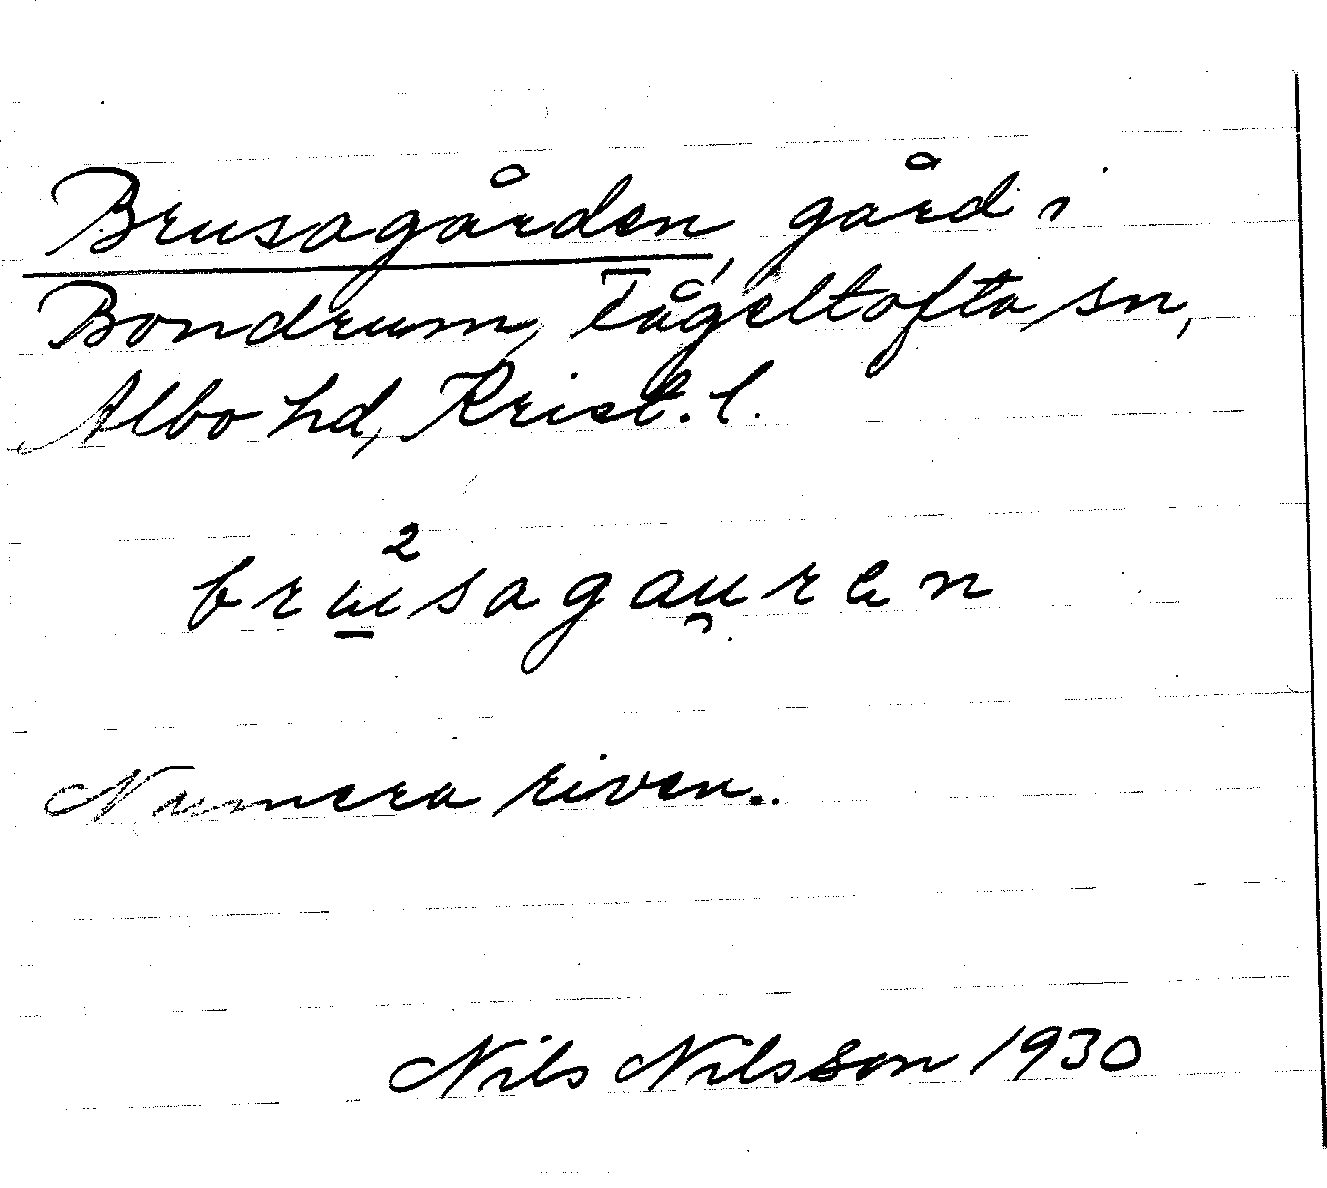 Brusagården, gård i
Bondrum, Fågeltofta sn,
Albo hd, Krist. l.
brusagau̯ren
Numera riven.
Nils Nilsson 1930